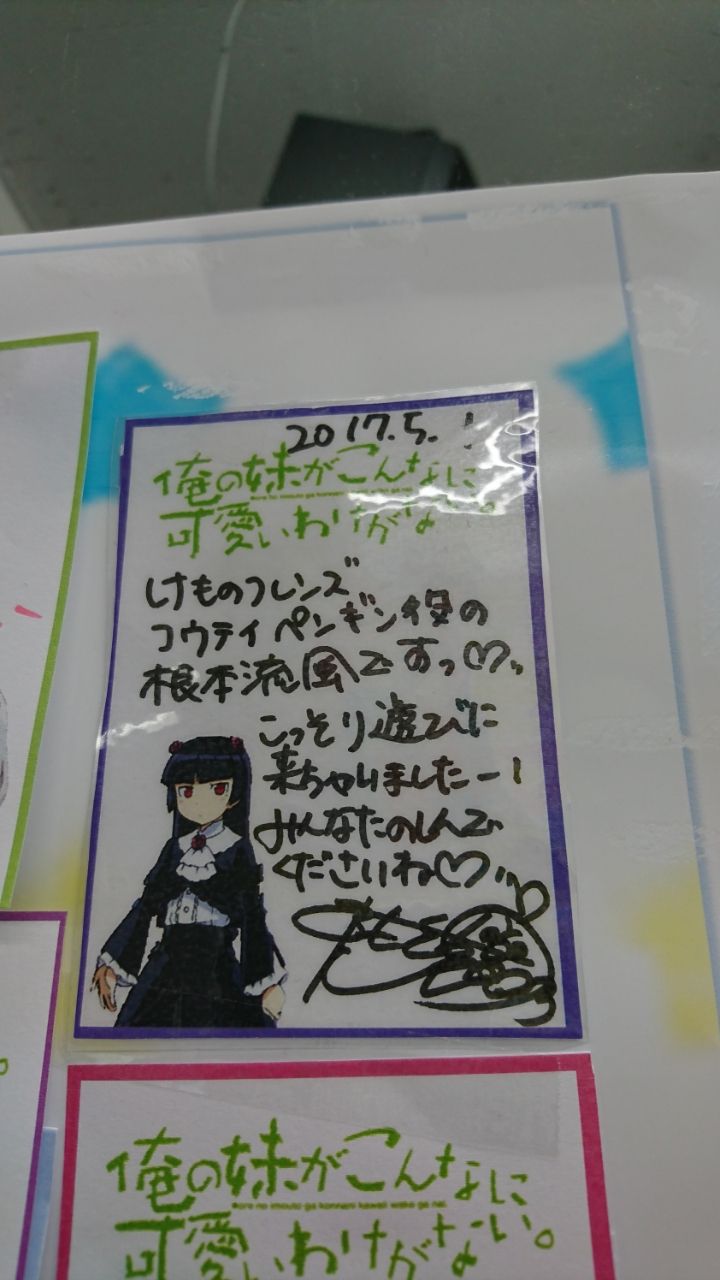 2017.5.
俺の妹がこんなに
可愛いわけがない。
けものフレンズ
コウテイペンギン役の
根本流風ですっ♡っ
こっそり遊びに
来ちゃいましたー!
みんなたのしんで
くださいね♡
俺の妹がこんなに
ore no imouto ga konnani kawaii wake ga nai.
可愛いわけがない。